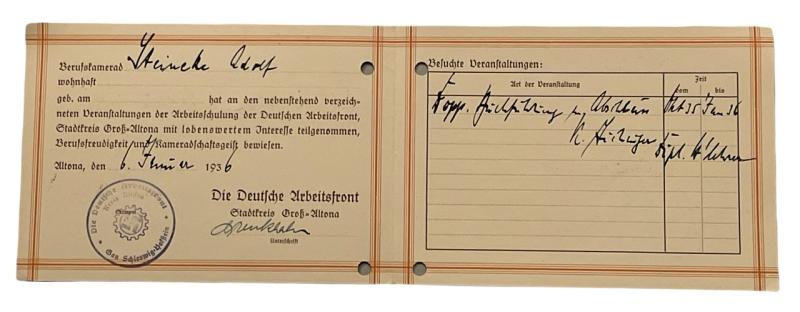 Berufskamerad Steincke Adolf
wohnhaft
geb. am hat an den nebenstehend verzeich-
neten Veranstaltungen der Arbeitsschulung der Deutschen Arbeitsfront,
Stadtkreis Groß-Altona mit lobenswertem Interesse teilgenommen,
Berufsfreudigkeit und Kameradschaftsgeist bewiesen.
Altona, den 6. Januar 1936
Die Deutsche Arbeitsfront
Stadtkreis Groß-Altona
Unterschrift
Die Deutsche Arbeitsfront
Gau Schleswig-Holstein
Besuchte Veranstaltungen:
Art der Veranstaltung
Zeit
vom bis
Dopp. Buchführung m. Abschluss Okt 35 Jan 36
Dipl. H'lehrer